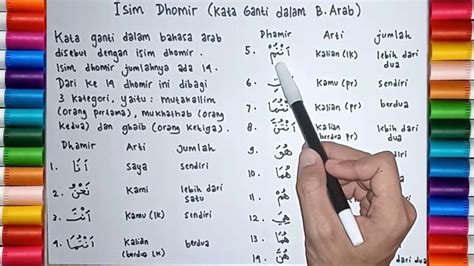 Isim Dhomir (Kata Ganti dalam B. Arab)
Kata ganti dalam bahasa arab
disebut dengan isim dhomir.
Isim dhomir jumlahnya ada 14.
Dari ke 14 dhomir ini dibagi
3 kategori, yaitu : mutakallim
(orang pertama), mukhathab (orang
kedua) dan ghaib (orang ketiga).
Dhamir Arti jumlah
1. أَنَا saya sendiri
2. نَحْنُ Kami lebih dari
satu
3. أَنْتَ Kamu (lk) sendiri
4. أَنْتُمَا Kalian berdua
(berdua lk)
Dhamir Arti jumlah
5. أَنْتُمْ Kalian (lk) lebih dari
dua
6. Kamu (pr) sendiri
7. أَنْتُمَا Kalian (pr) berdua
8. أَنْتُنَّ Kalian lebih dari
dua
9. هُوَ
10. هُمَا
11. هُمْ
12. هِيَ
13. هُمَا
14.